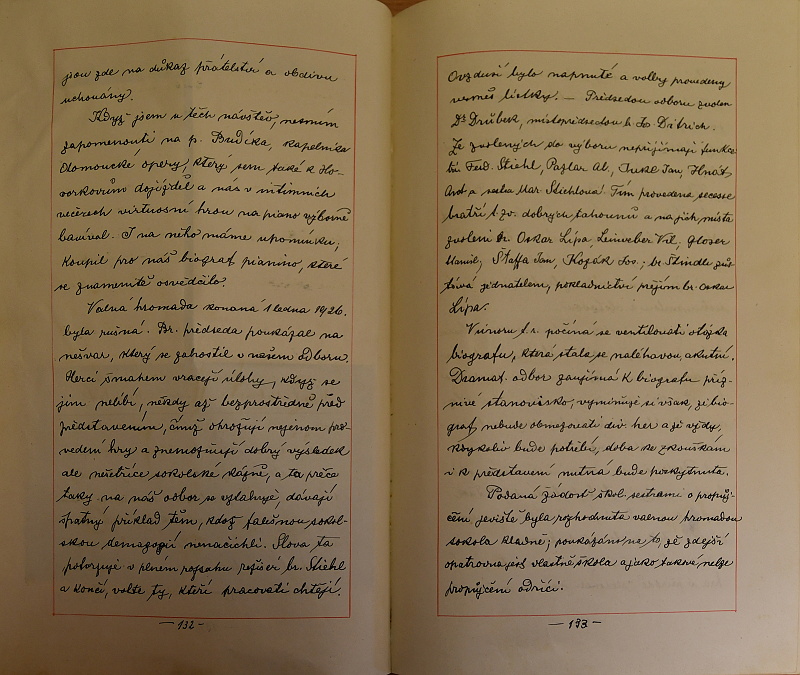 jsou zde na důkaz přátelství a obdivu
uchovány.
Když jsem u těch návštěv, nesmím
zapomenouti na p. Budíka, kapelníka
Olomoucké opery, který sem také k Ho-
vorkovům dojížděl a nás v intimních
večerech virtuosní hrou na piano výborně
bavíval. I na něho máme upomínku;
koupil pro náš biograf pianino, které
se znamenitě osvědčilo.
Valná hromada konaná 1 ledna 1926.
byla rušná. Br. předseda poukázal na
nešvar, který se zahostil v našem odboru.
Herci šmahem vracejí úlohy, když se
jim nelíbí, někdy až bezprostředně před
představením, čímž ohrožují nejenom pro-
vedení hry a znemožňují dobrý výsledek
ale nešetříce sokolské kázně, a ta přece
taky na náš odbor se vztahuje, dávají
špatný příklad těm, kdož falešnou sokol-
skou demagogií nenačichli. Slova ta
potvrzuje v plném rozsahu režiser br. Stiehl
a končí, volte ty, kteří pracovati chtějí.
— 132 —
Ovzduší bylo napnuté a volby provedeny
vesměs lístky. — Předsedou odboru zvolen
Dr Drůbek, místopředsedou b. Jos. Ditrich.
Ze zvolených do výboru nepřijímají funkce
bři Ferd. Stiehl, Pazlar Al, Jan, Hnát
Ant a sestra Mar. Stiehlova. Tím provedena secesse
bratří t. zv. dobrých tahounů a na jich místa
zvoleni br. Oskar Lípa, Leinveber Vil, Gloser
Kamil, Staffa Jan, Kozák Jos.; br. Šindler zůs-
tává jednatelem, pokladnictví přejím br. Oskar
Lípa.
V únoru t.r. počíná se ventilovati otázka
biografu, která stala se naléhavou, akutní.
Dramat. odbor zaujímá k biografu příz-
nivé stanovisko, vyminuje si však, že bio-
graf nebude obmezovati div. her a že vždy,
kdykoliv bude potřebí, doba ke zkouškám
i k představení nutná bude poskytnuta.
Podaná žádost škol. sestrami o propůj-
čení jeviště byla rozhodnuta valnou hromadou
sokola kladně; poukázáno na to, že zdejší
opatrovna jest vlastně škola a jako takové nelze
propůjčení odříci.
— 133 —